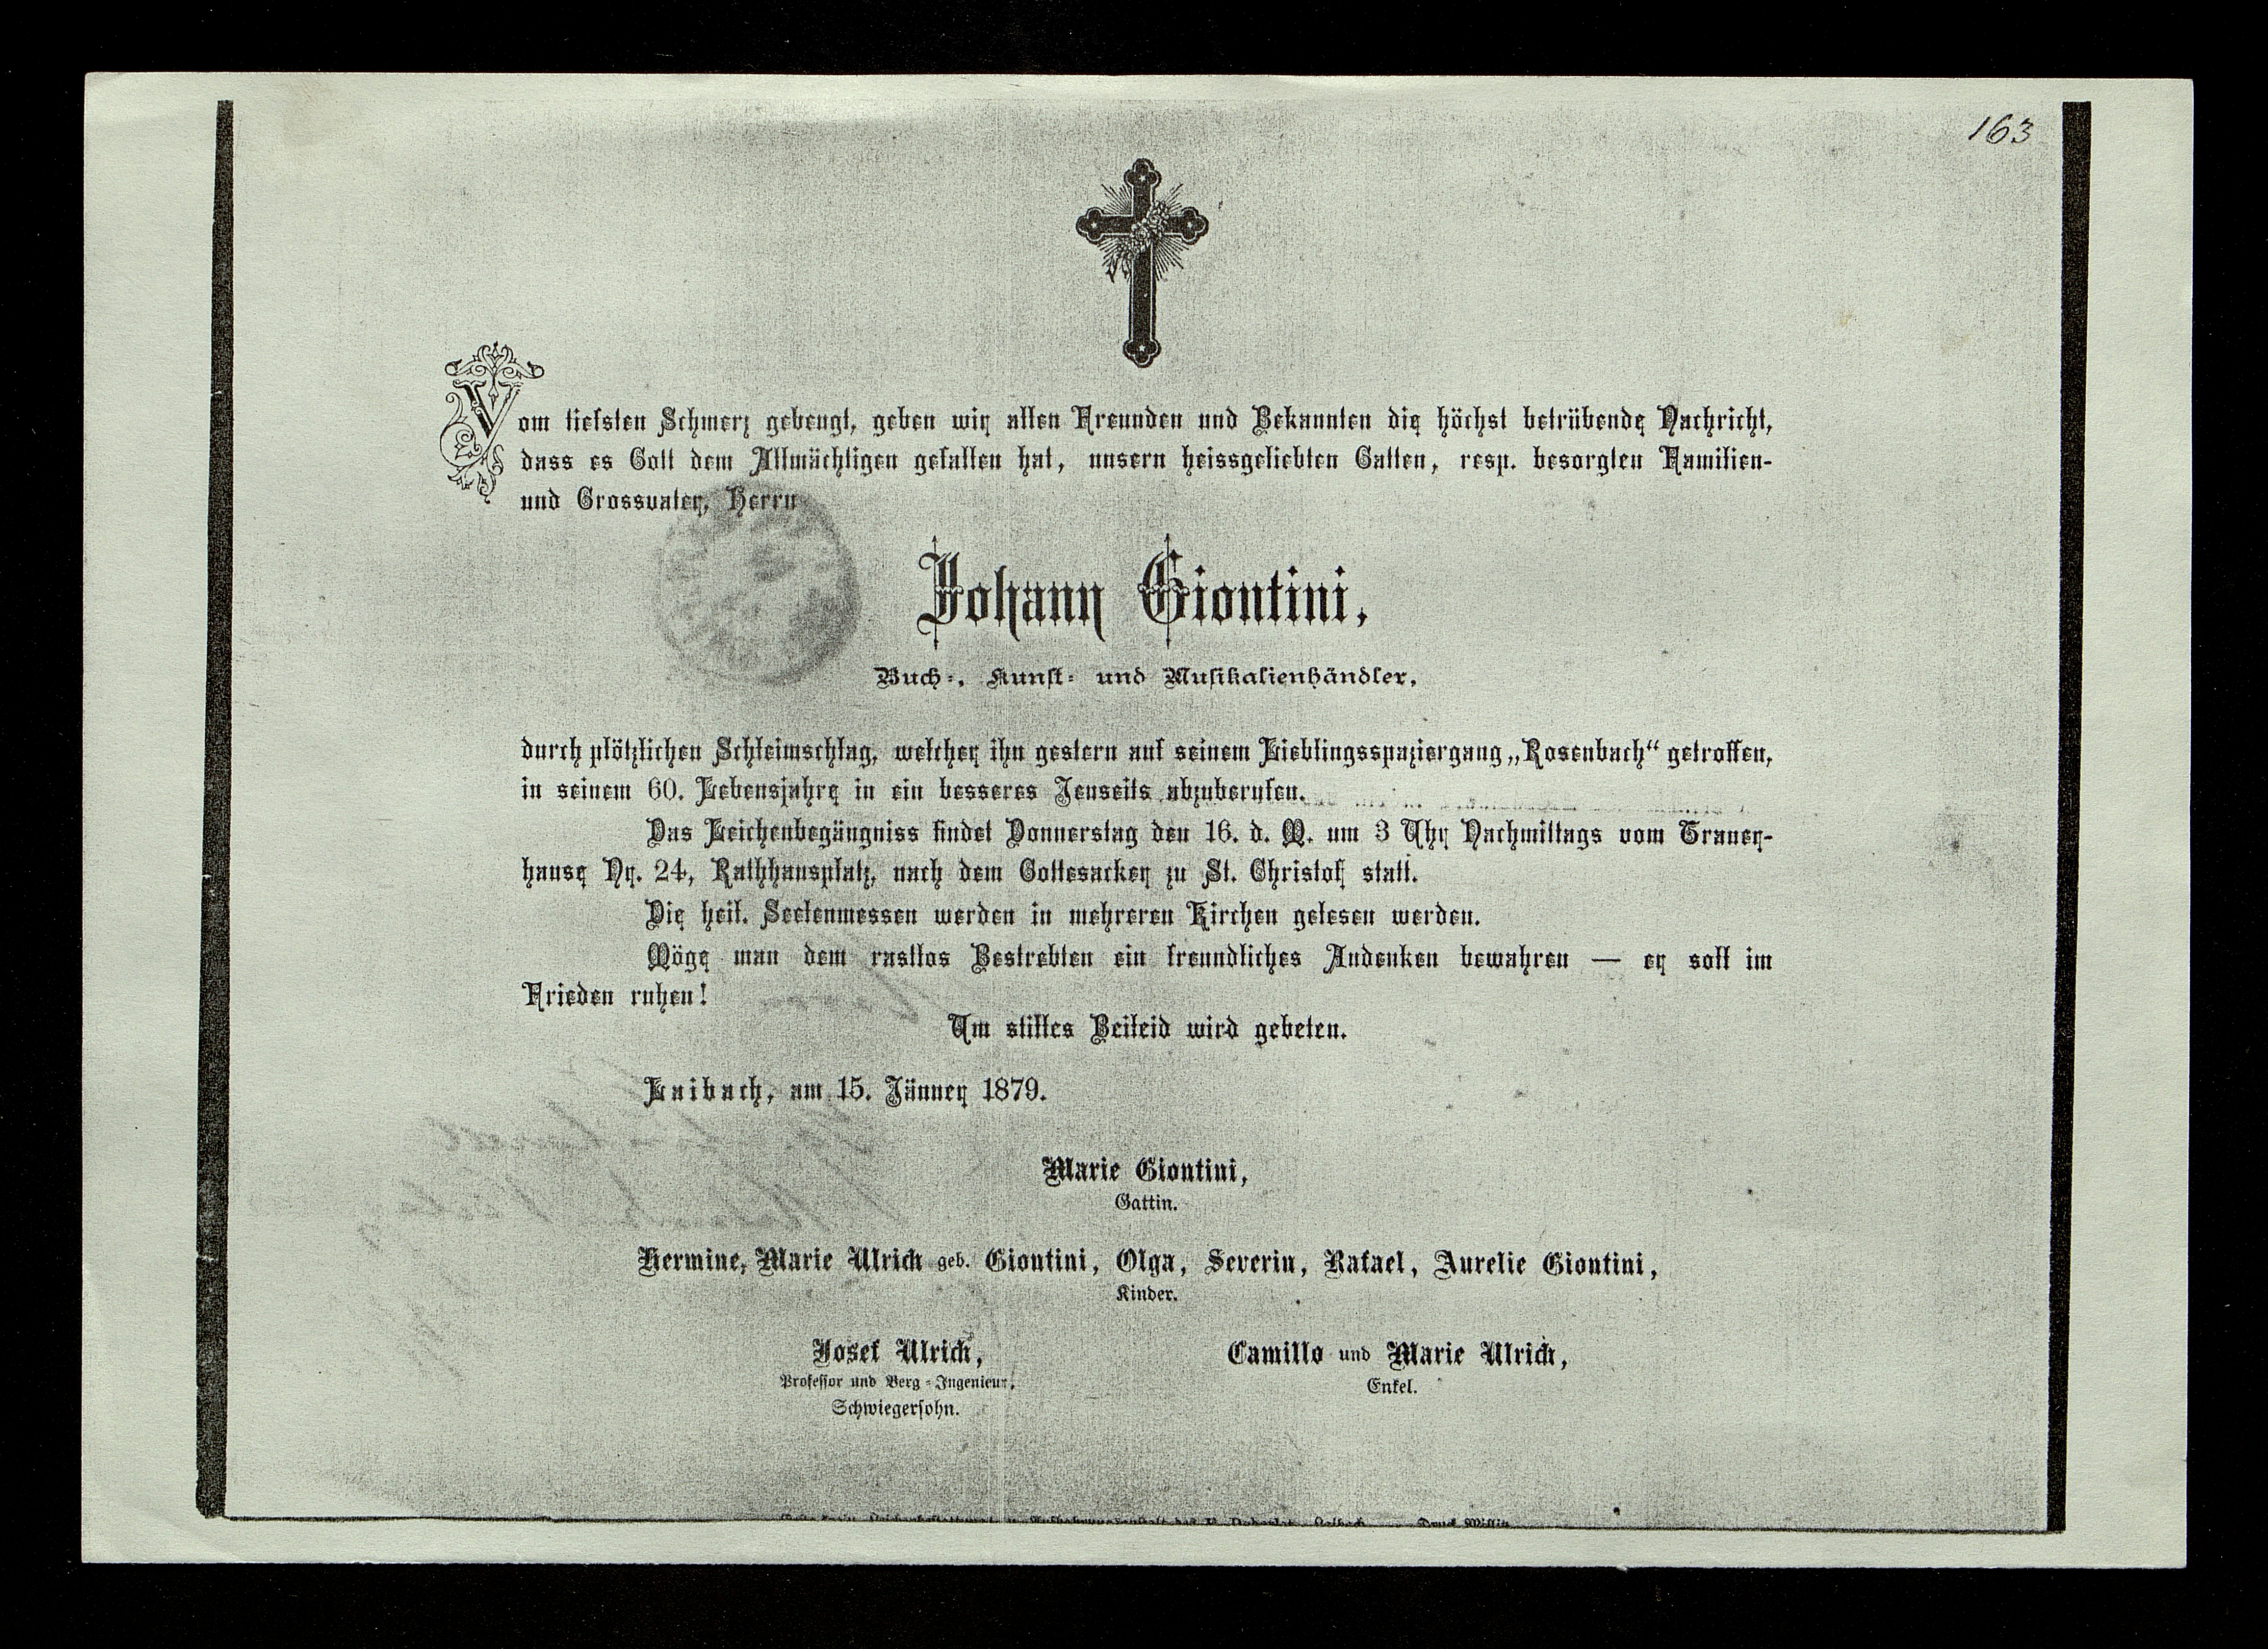 163
Vom tiefsten Schmerz gebeugt, geben wir allen Freunden und Bekannten die höchst betrübende Nachricht,
dass es Gott dem Allmächtigen gefallen hat, unsern heissgeliebten Gatten, resp. besorgten Familien-
und Grossvater, Herrn
Johann Giontini,
Buch-, Kunst- und Musikalienhändler,
durch plötzlichen Schleimschlag, welcher ihn gestern auf seinem Lieblingsspaziergang „Rosenbach“ getroffen,
in seinem 60. Lebensjahre in ein besseres Jenseits abzuberufen.
Das Leichenbegängniss findet Donnerstag den 16. d. M. um 3 Uhr Nachmittags vom Trauer-
hause Nr. 24, Rathhausplatz, nach dem Gottesacker zu St. Christof statt.
Die heil. Seelenmessen werden in mehreren Kirchen gelesen werden.
Möge man dem rastlos Bestrebten ein freundliches Andenken bewahren — er soll im
Frieden ruhen!
Um stilles Beileid wird gebeten.
Laibach, am 15. Jänner 1879.
Marie Giontini,
Gattin.
Hermine, Marie Ulrich geb. Giontini, Olga, Severin, Rafael, Aurelie Giontini,
Kinder.
Josef Ulrich,
Professor und Berg-Ingenieur,
Schwiegersohn.
Camillo und Marie Ulrich,
Enkel.